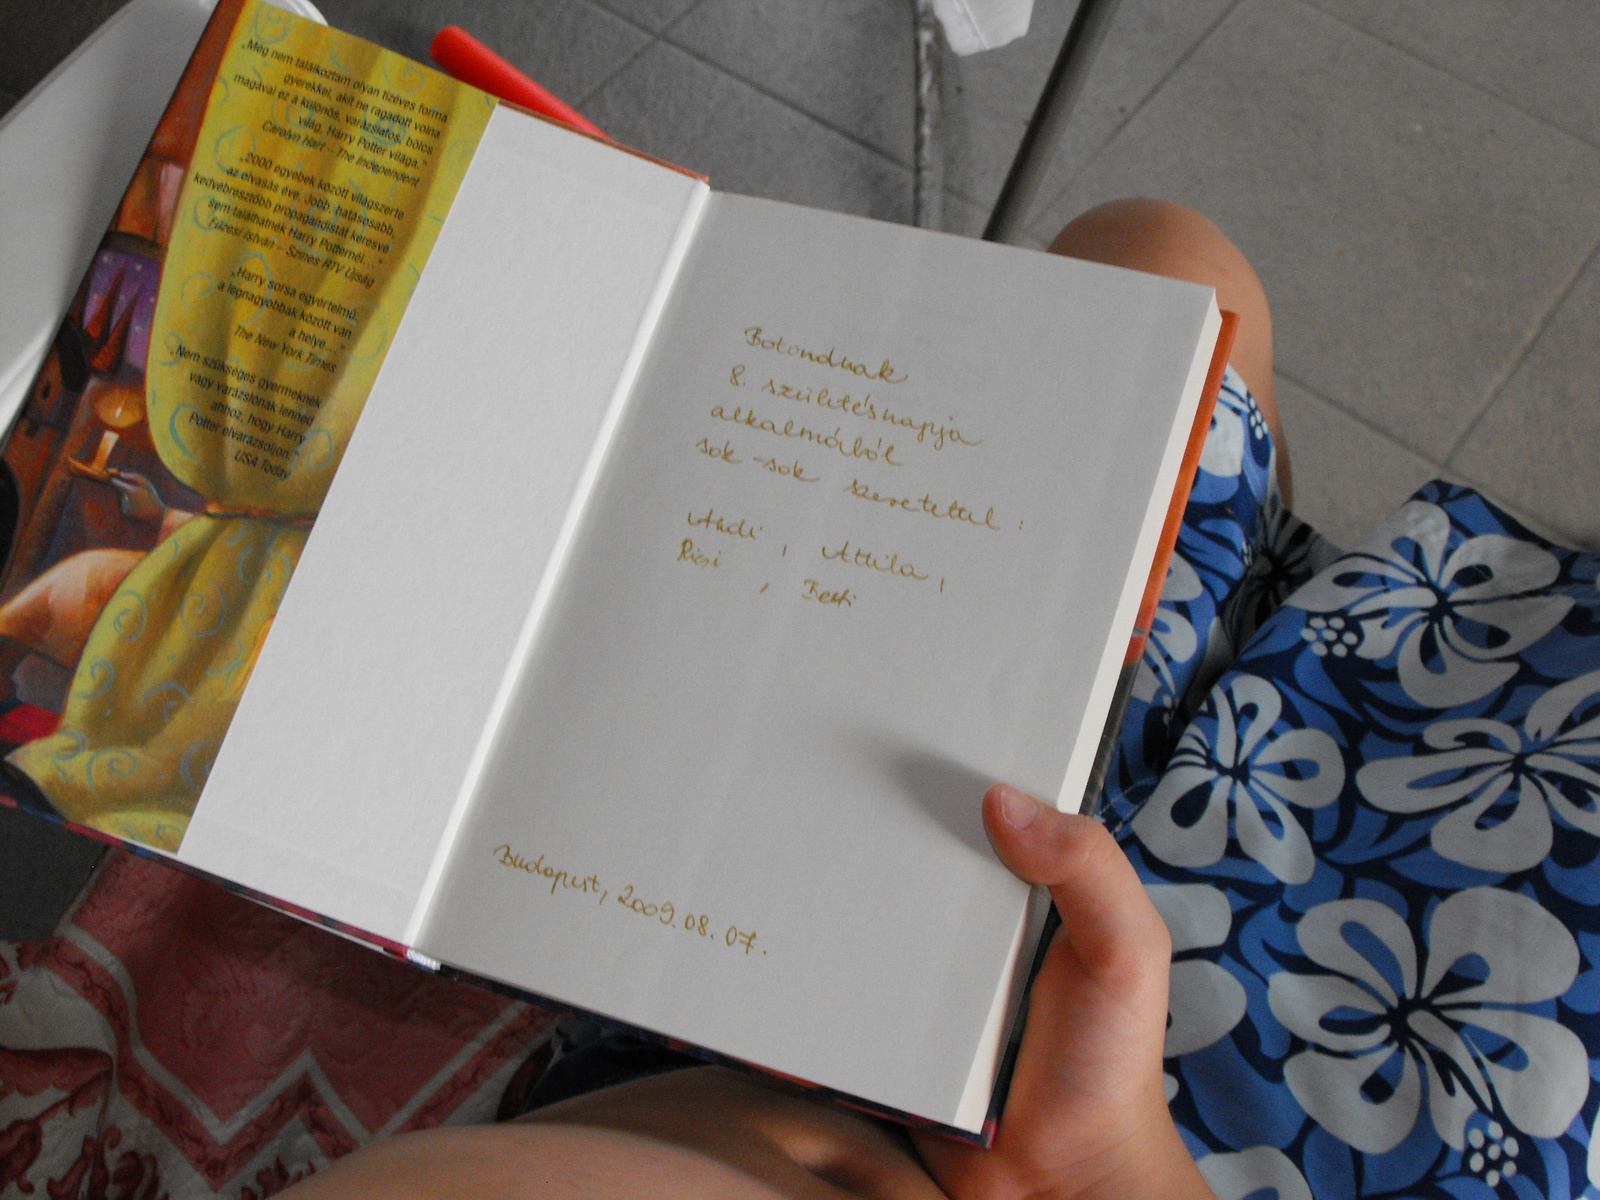 „Még nem találkoztam olyan tízéves forma
gyerekkel, akit ne ragadott volna
magával ez a különös, varázslatos, bölcs
világ, Harry Potter világa."
Carolyn Hart – The Independent
„2000 egyebek között világszerte
az olvasás éve. Jobb, hatásosabb,
kedvébresztőbb propagandistát keresve
sem találhatnék Harry Potternél..."
Fázsi István – Színes RTV Újság
„Harry sorsa egyértelmű:
a legnagyobbak között van
a helye..."
The New York Times
„Nem szükséges gyermeknek
vagy varázslónak lenned
ahhoz, hogy Harry
Potter elvarázsoljon."
USA Today
Botondnak
8. születésnapja
alkalmából
sok-sok szeretettel:
Andi, Attila,
Ricsi, Betti
Budapest, 2009.08.07.